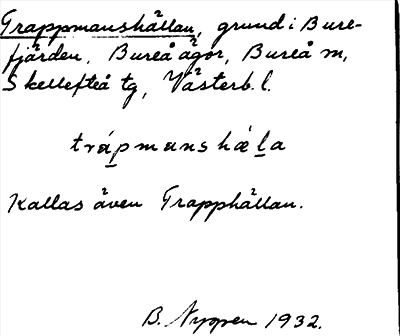 Trappmanshällan, grund i Bure-
fjärden, Bureå ägor, Bureå m,
Skellefteå tg, Västerb. l.
trápmanshǽla
Kallas även Trapphällan.
B. Nyqren 1932.